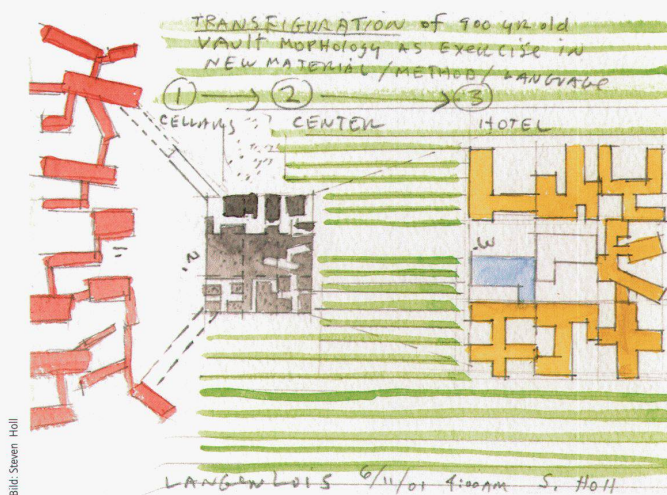 TRANSFIGURATION of 900 yr old
VAULT MOPHOLOGY AS EXERCISE IN
NEW MATERIAL/METHOD/LANGUAGE
1 → 2 → 3
CELLARS CENTER HOTEL
1.
2.
3.
LANGENLOIS 6/11/01 4:00AM S. HOLL
Bild: Steven Holl